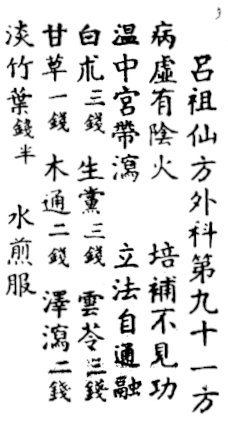 呂祖仙方外科第九十一方
病虛有陰火 培補不見功
溫中宮帶瀉 立法自通融
白朮三錢 生黨三錢 雲苓三錢
甘草一錢 木通二錢 澤瀉二錢
淡竹葉錢半 水煎服